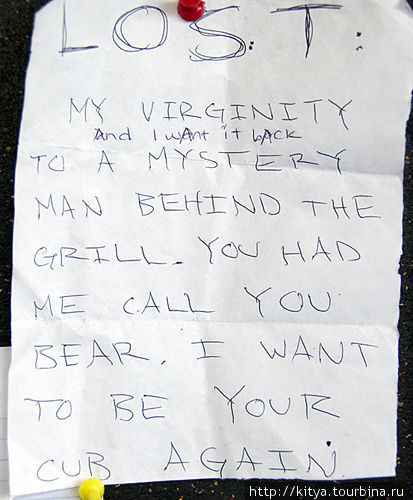 LOST:
MY VIRGINITY
And I want it back
TO A MYSTERY
MAN BEHIND THE
GRILL. YOU HAD
ME CALL YOU
BEAR. I WANT
TO BE YOUR
CUB AGAIN.
http://kitya.tourbina.ru